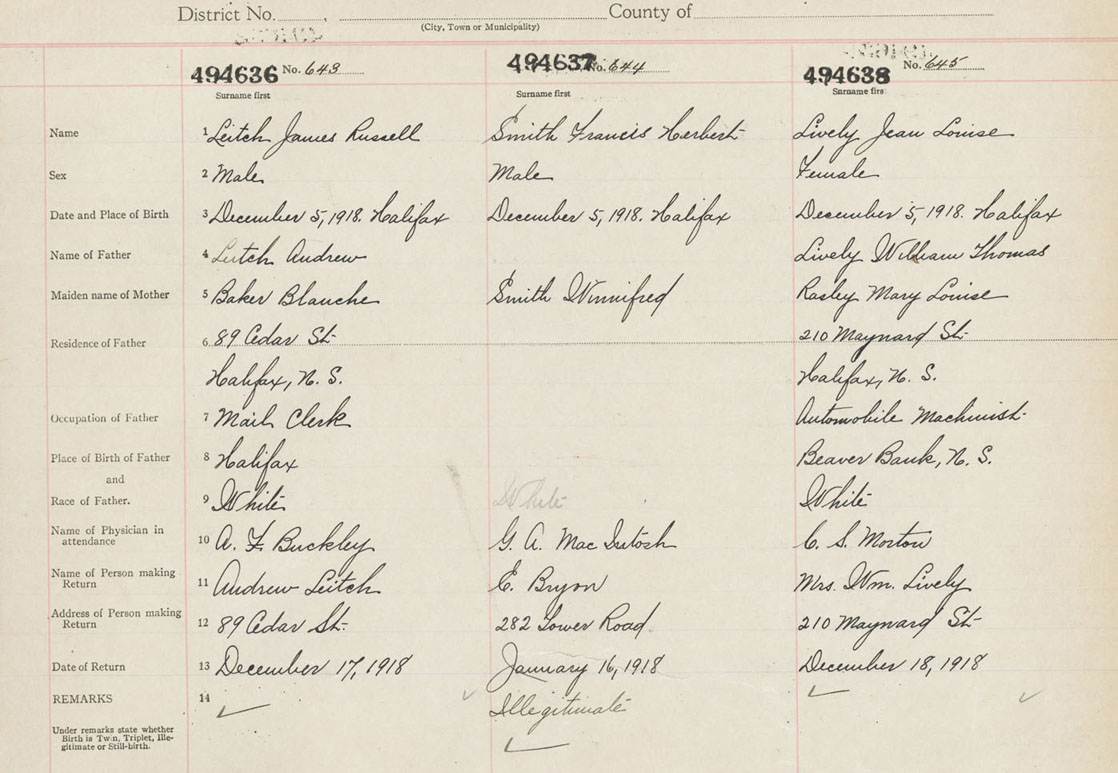 District No. , County of
(City, Town or Municipality)
494636 No. 643 494637 No. 644 494638 No. 645
Surname first Surname first Surname first
Name 1 Leitch James Russell Smith Francis Herbert Lively Jean Louise
Sex 2 Male Male Female
Date and Place of Birth 3 December 5, 1918. Halifax December 5, 1918. Halifax December 5, 1918. Halifax
Name of Father 4 Leitch Andrew Lively William Thomas
Maiden name of Mother 5 Baker Blanche Smith Winnifred Rasley Mary Louise
Residence of Father 6. 89 Cedar St. 210 Maynard St.
Halifax, N. S. Halifax, N. S.
Occupation of Father 7 Mail Clerk Automobile Machinist
Place of Birth of Father 8 Halifax Beaver Bank, N. S.
and
Race of Father. 9 White White White
Name of Physician in
attendance 10 A. F. Buckley G. A. Mac Intosh C. S. Morton
Name of Person making
Return 11 Andrew Leitch E. Bryon Mrs. Wm. Lively
Address of Person making
Return 12 89 Cedar St. 282 Tower Road. 210 Maynard St.
Date of Return 13 December 17, 1918 January 16, 1918 December 18, 1918
REMARKS 14 Illegitimate
Under remarks state whether
Birth is Twin, Triplet, Ille-
gitimate or Still-birth.